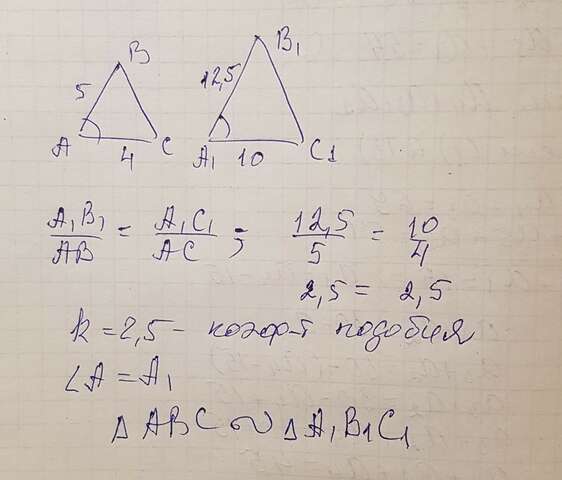 B
B₁
5
12,5
A
4
C
A₁
10
C1
A₁B₁/AB = A₁C₁/AC ; 12,5/5 = 10/4
2,5 = 2,5
k = 2,5 - коэфф подобия
∠A = A₁
△ ABC ∾ △ A₁B1C₁